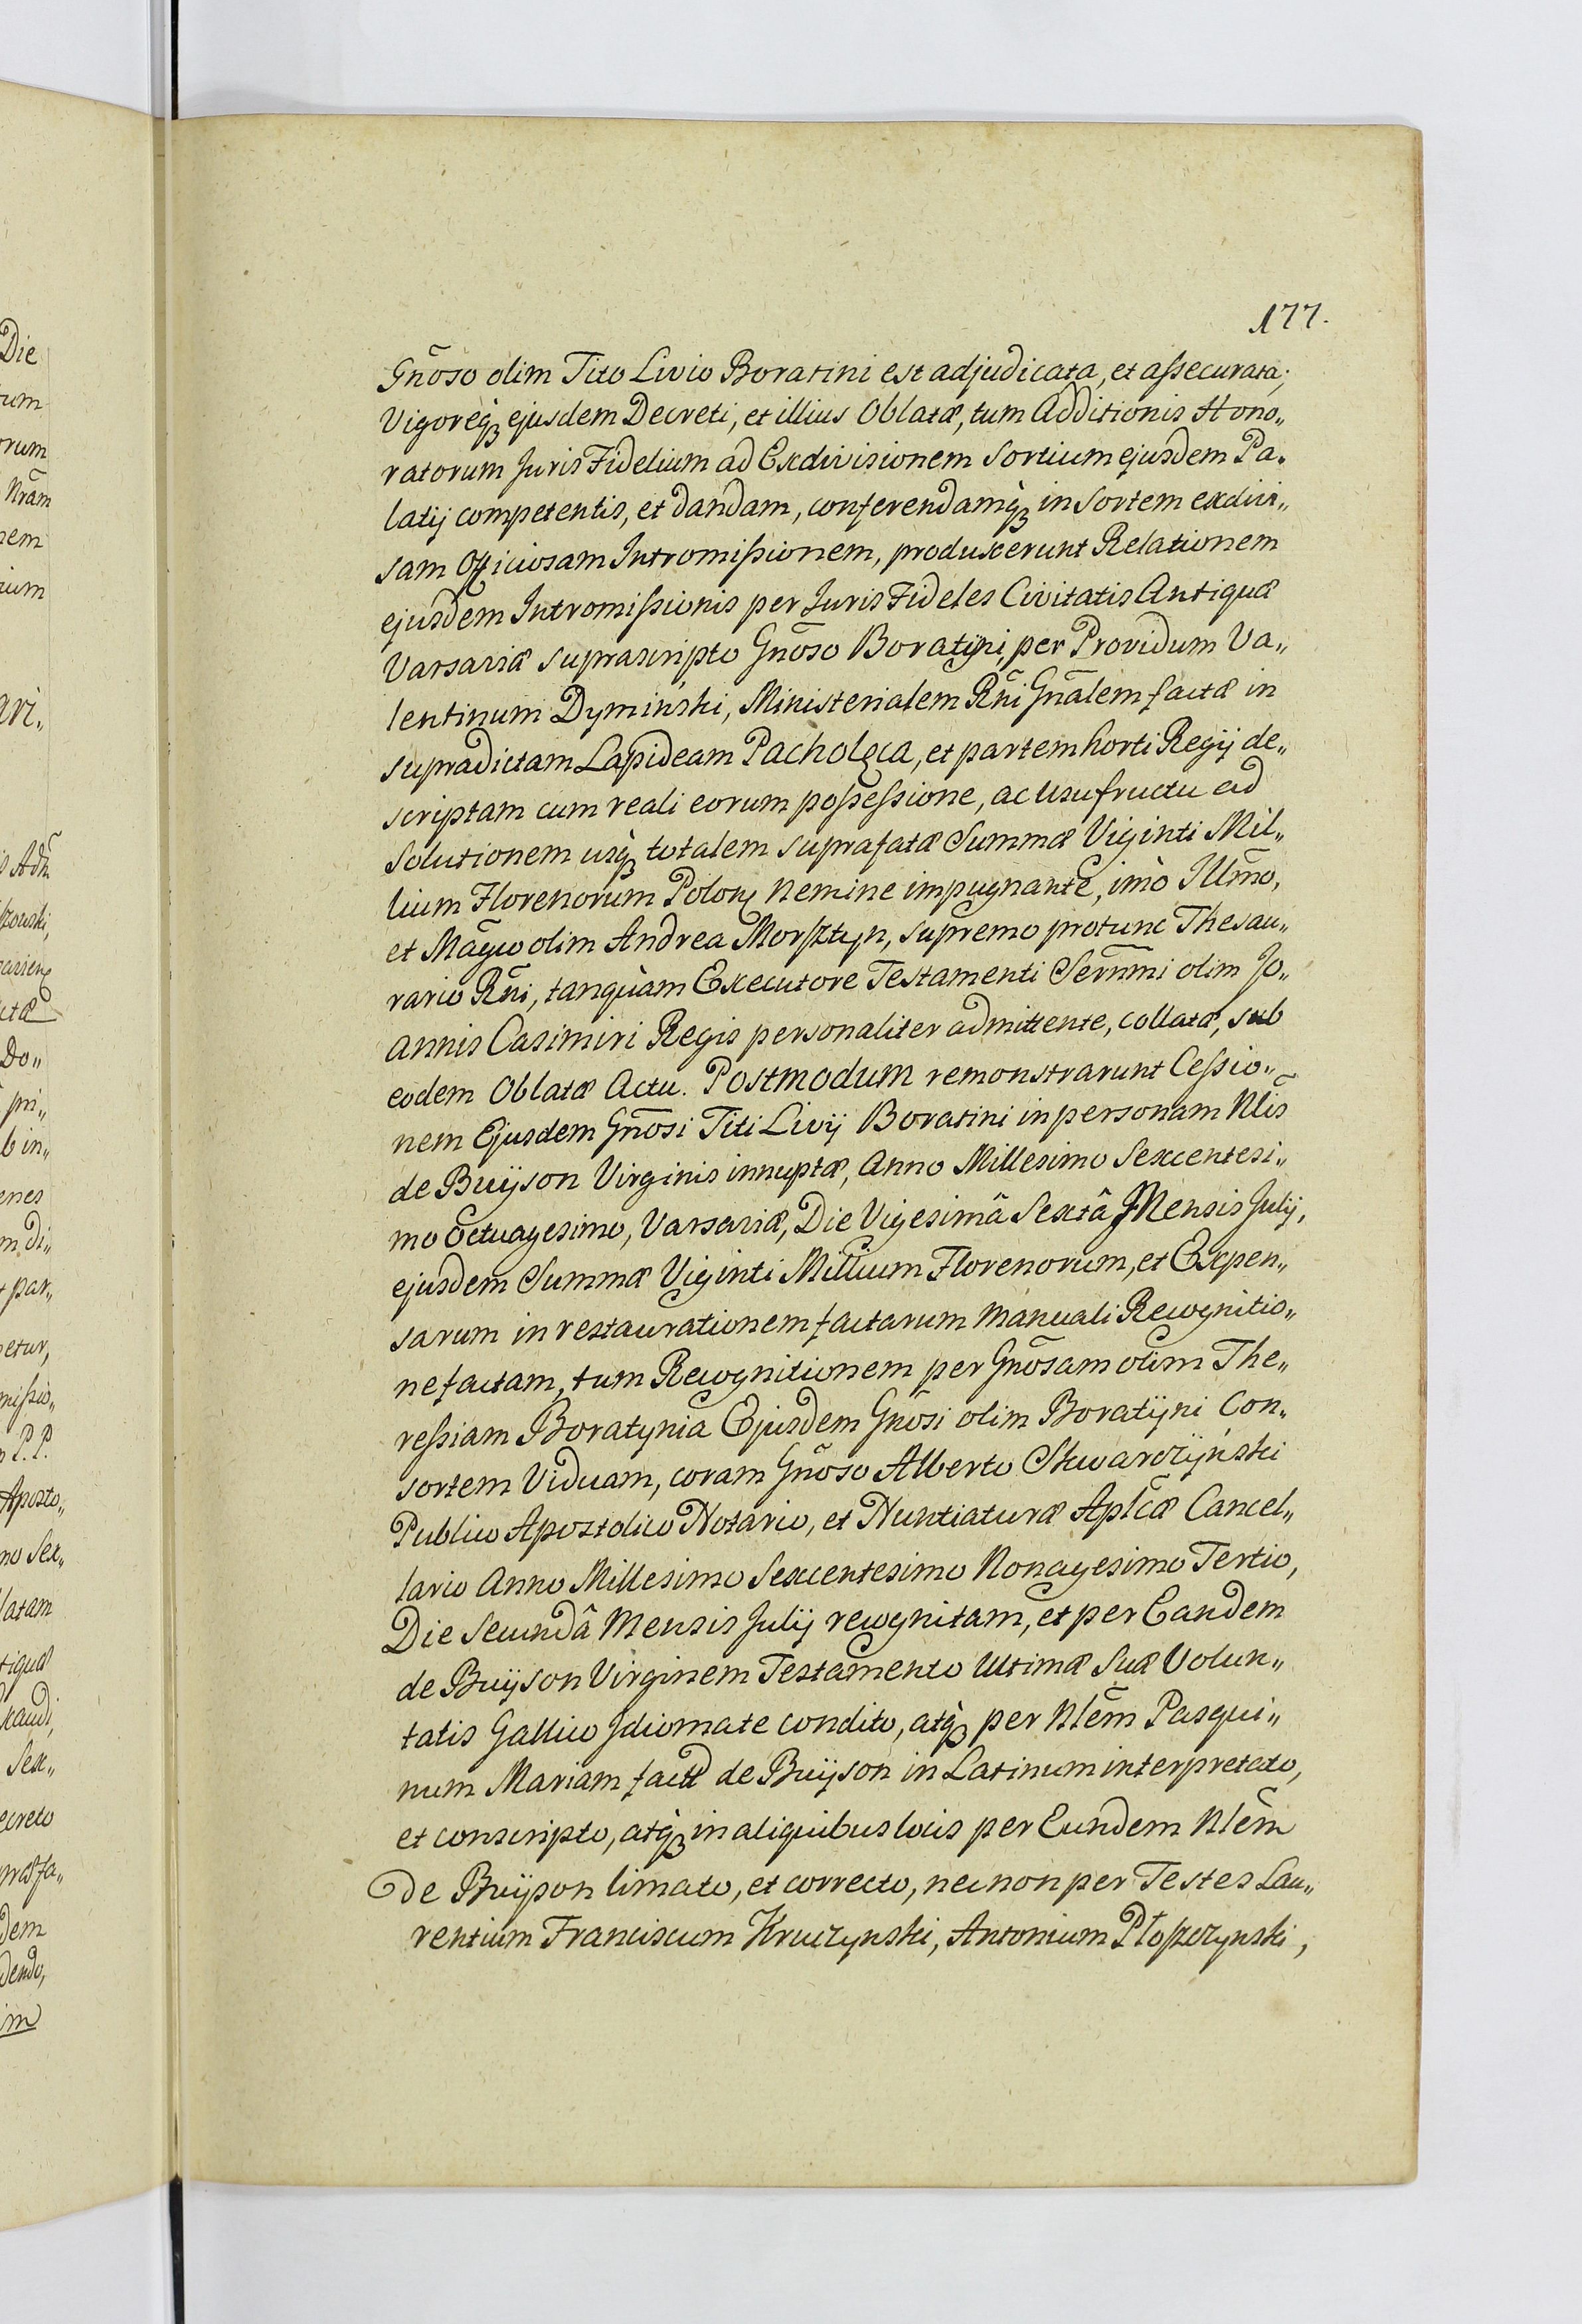 177.
Gnõso olim Tito Livio Boratini est adjudicata, et aſsecurata;
Vigoreq́ꝫ ejusdem Decreti, et illius Oblatæ, tum Additionis Hono„
ratorum Juris Fidelium ad Exdivisionem Sortium ejusdem Pa„
latij competentis, et dandam, conferendamq́ꝫ in Sortem exdivi„
sam Officiosam Intromiſsionem, produxerunt Relationem
ejusdem Intromiſsionis per Juris Fideles Civitatis Antiquæ
Varsaviæ suprascripto Gnõso Boratÿni, per Providum Va„
lentinum Dymiński, Ministerialem Rñi Gnãlem factæ in
supradictam Lapideam Pacholęca, et partem horti Regij de„
scriptam cum reali eorum poſseſsione, ac Usufructu ad
Solutionem usq́ꝫ totalem suprafatæ Summæ Viginti Mil„
lium Florenorum Poloꝝ Nemine impugnante, imò Illm̃o,
et Mãgco olim Andrea Morſztyn, supremo protunc Thesau„
rario Rñi, tanquàm Executore Testamenti Serñmi olim Jo„
annis Casimiri Regis personaliter admittente, collatæ, sub
eodem Oblatæ Actu. Postmodum remonstrarunt Ceſsio„
nem Ejusdem Gnõsi Titi Livij Boratini in personam Nlĩs
de Buÿson Virginis innuptæ, Anno Millesimo Sexcentesi„
mo Octuagesimo, Varsaviæ, Die Vigesimâ Sextâ Mensis Julij,
ejusdem Summæ Viginti Millium Florenorum, et Expen„
sarum in restaurationem factarum Manuali Recognitio„
ne factam, tum Recognitionem per Gnõsam olim The„
reſsiam Boratynia Ejusdem Gnõsi olim Boratÿni Con„
sortem Viduam, coram Gnõso Alberto Skwarczÿński
Publico Apostolico Notario, et Nuntiaturæ Aplĩcæ Cancel„
lario Anno Millesimo Sexcentesimo Nonagesimo Tertio,
Die Secundâ Mensis Julij recognitam, et per Eandem
de Buÿson Virginem Testamento Ultimæ Suæ Volun„
tatis Gallico Jdiomate condito, atq́ꝫ per Nlẽm Pasqui„
num Mariam factæ de Buÿson in Latinum interpretato,
et conscripto, atq́ꝫ in aliquibus locis per Eundem Nlẽm
de Buÿson limato, et correcto, necnon per Testes Lau„
rentium Franciscum Kruczynski, Antonium Płoſzczynski,